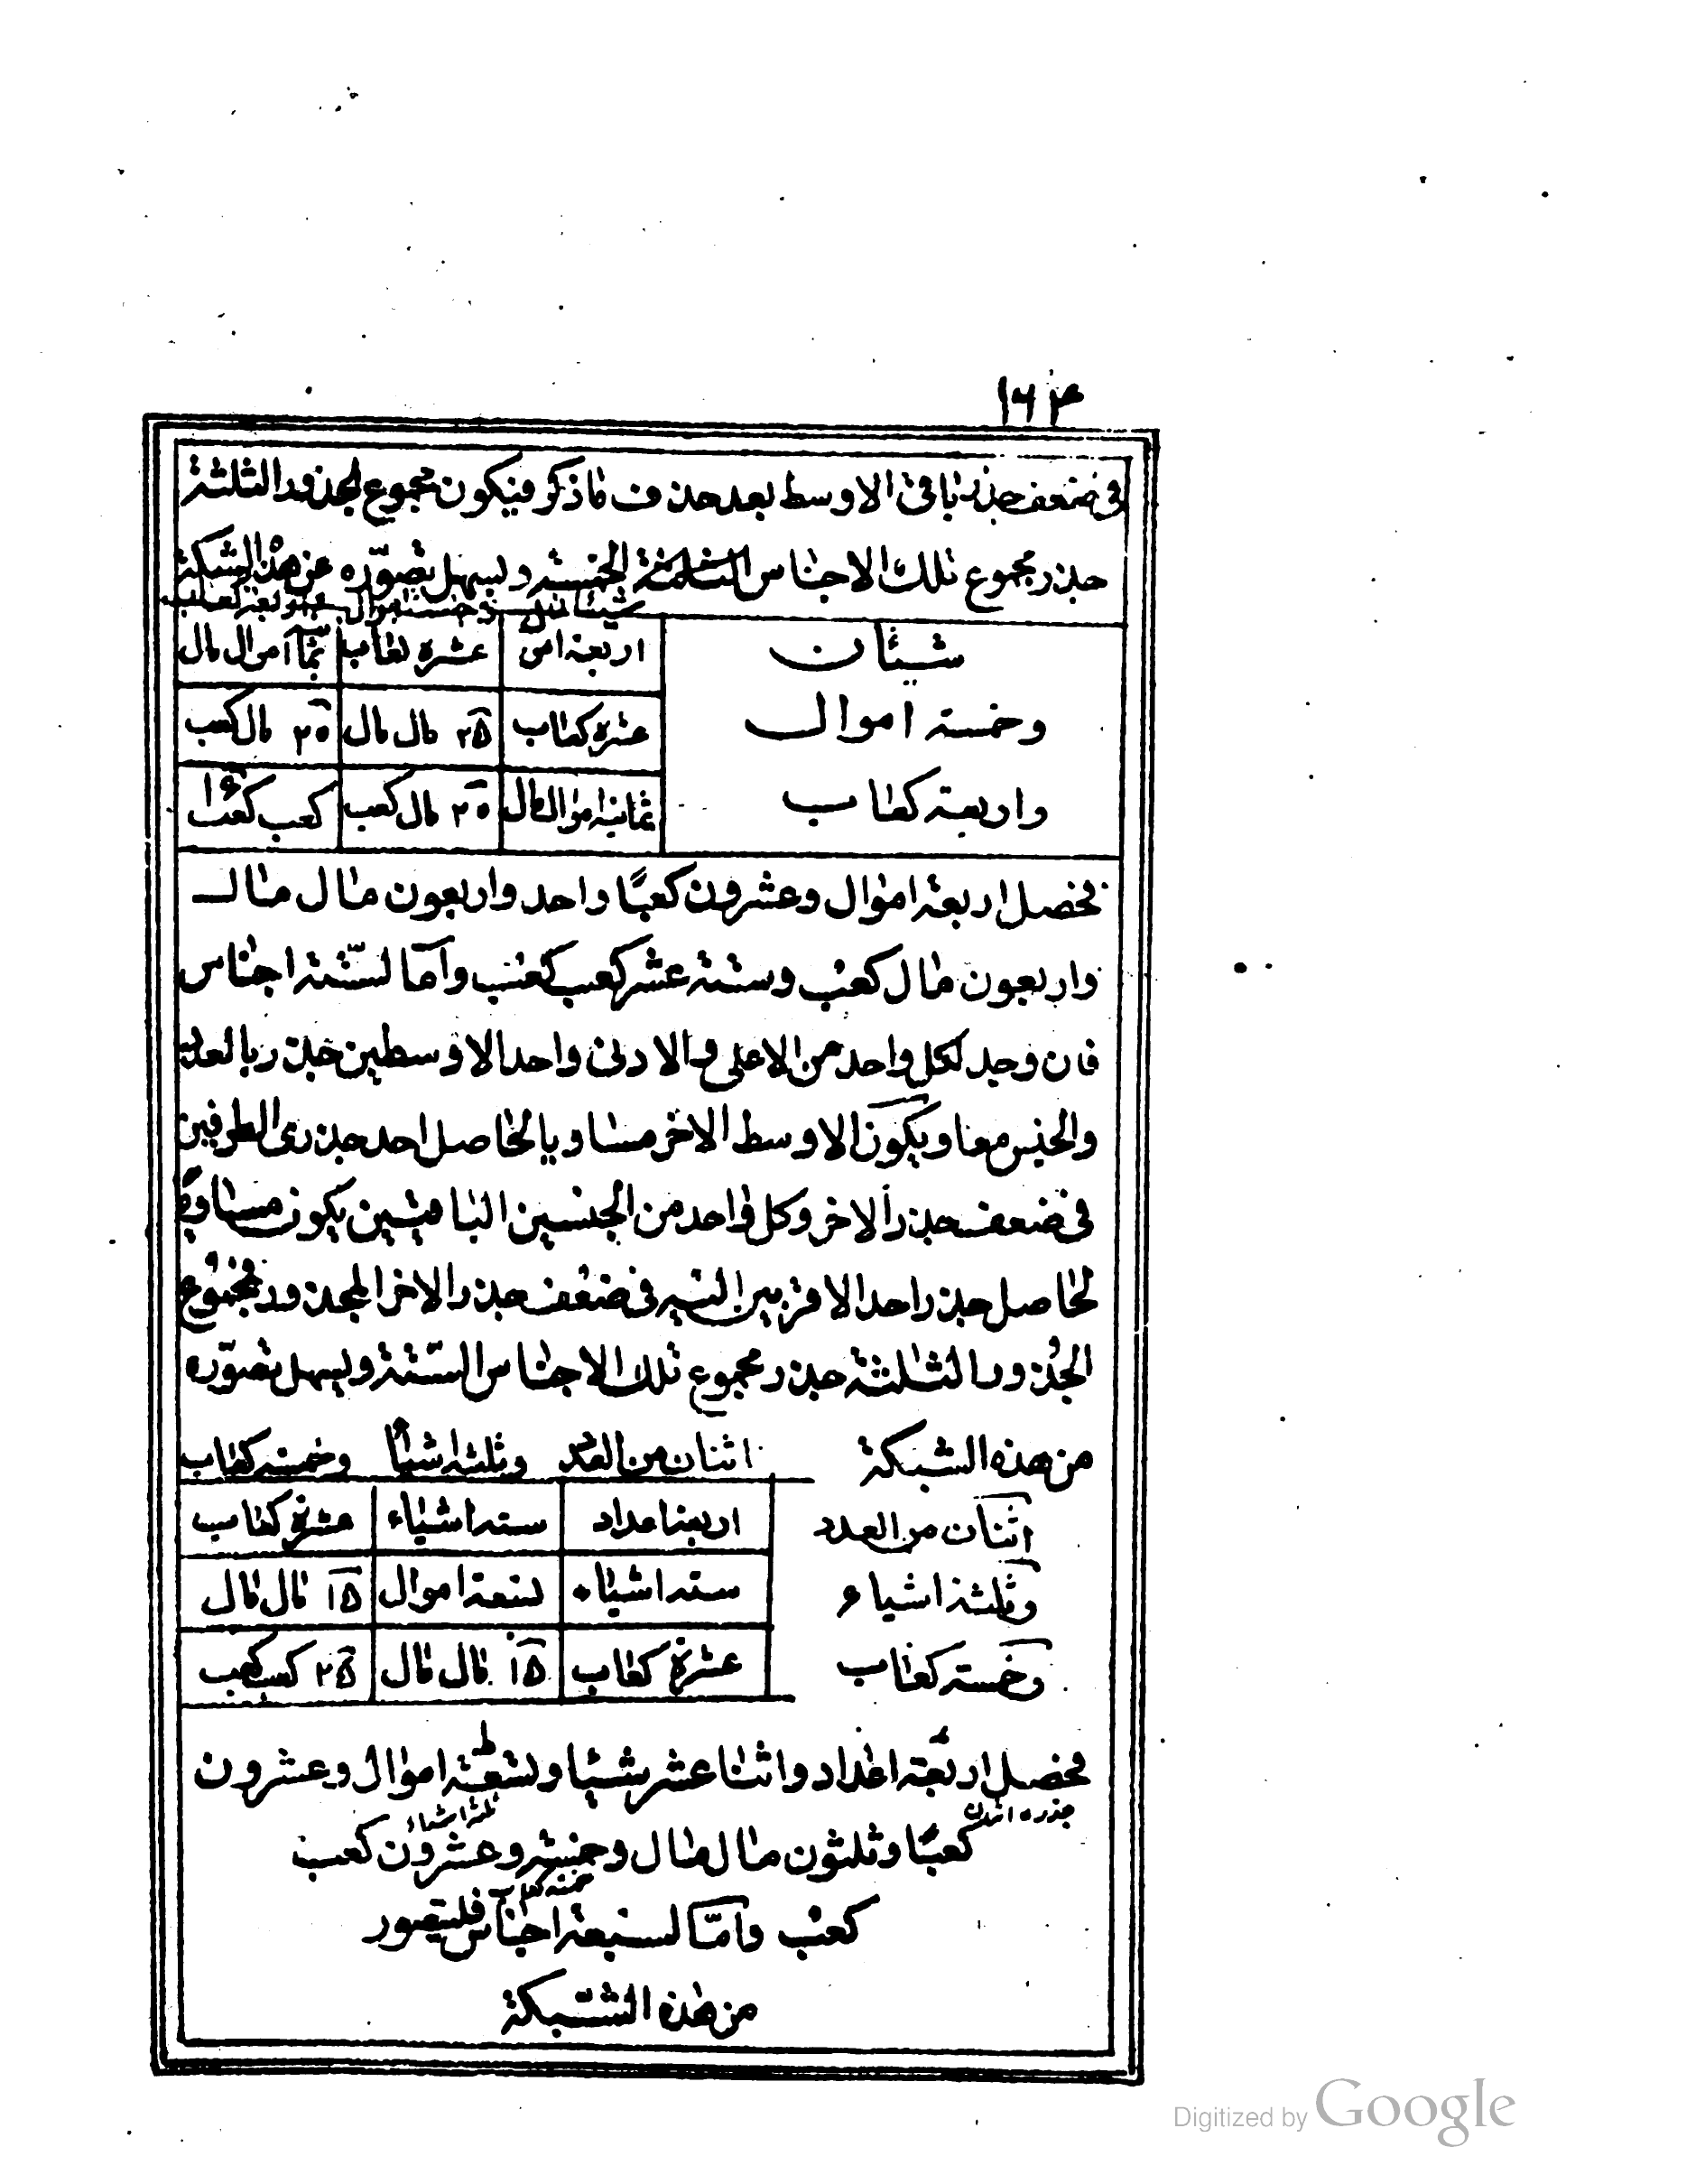 ١٦٣
فى ضعف جذر باقى الاوسط بعد حذف ما ذكر فيكون مجموع الجذور الثلثة
جذر مجموع تلك الاجناس الخمسة ويسهل تصوّره من هذه الشبكة
شيئان وخمسة اموال واربعة كعاب
شيئان اربعة اموال عشرة كعاب ثمانية اموال مال
وخمسة اموال عشرة كعاب ٢٥ مال مال ٢٠ مال كعب
واربعة كعاب ثمانية اموال مال ٢٠ مال كعب كعب كعب ١٦
فحصل اربعة اموال وعشرون كعبًا واحد واربعون مال مال
واربعون مال كعب وستة عشر كعب كعب وامّا لستّة اجناس
فان وجد لكل واحد من الاعلى والادنى واحد الاوسطين جذر بالعدد
والجنس معا ويكون الاوسط الاخر مساويا لحاصل احد جذرى الطرفين
فى ضعف جذر الاخر وكل واحد من الجنسين الباقيين يكون مساويًا
لحاصل جذر احد الاقربين اليه فى ضعف جذر الاخر المجذور فمجموع
الجذور الثلثة جذر مجموع تلك الاجناس الستّة ويسهل تصوّره
من هذه الشبكة اثنان من العدد وثلثة اشياء وخمسة كعاب
اثنان من العدد اربعة اعداد ستة اشياء عشرة كعاب
وثلثة اشياء ستة اشياء تسعة اموال ١٥ مال مال
وخمسة كعاب عشرة كعاب ١٥ مال مال ٢٥ كعب كعب
فحصل اربعة اعداد واثنا عشر شيئا وتسعة اموال وعشرون
جذره اثنان ثلثة اشياء
كعبًا وثلثون مال مال وخمسة وعشرون كعب
خمسة كعاب
كعب وامّا لسبعة اجناس فليتصور
من هذه الشبكة
Digitized by Google